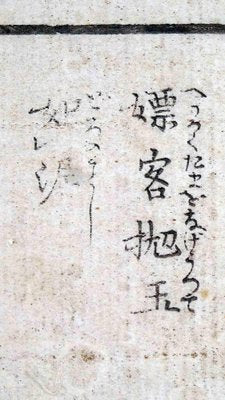 へうかくたまをなげうつて
嫖客抛玉
どろのごとし
如泥